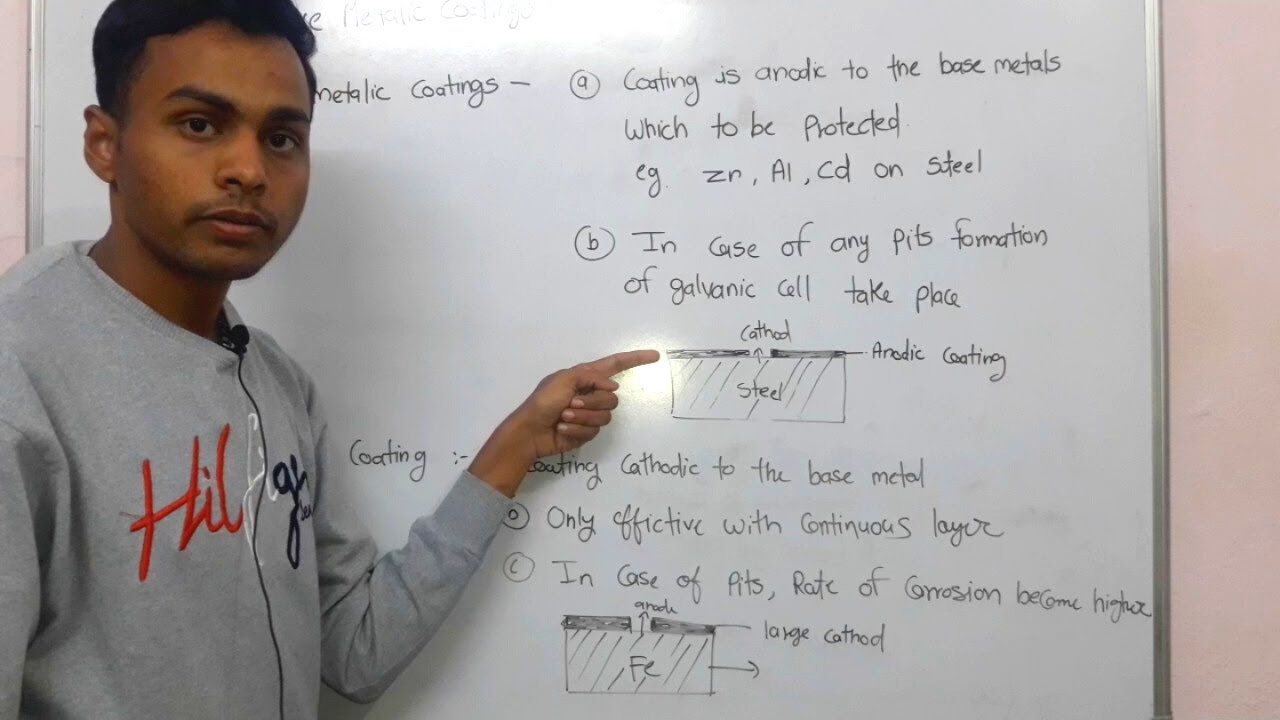 Metalic Coatings
metalic Coatings – ⓐ Coating is anodic to the base metals
Which to be Protected.
eg. Zn, Al, Cd on Steel
ⓑ In Case of any pits formation
of galvanic cell take place
Cathod
Anodic Coating
Steel
Coating :- Coating Cathodic to the base metal
ⓑ Only effictive with Continuous layer
ⓒ In Case of Pits, Rate of Corrosion become higher
anode
large cathod
Fe